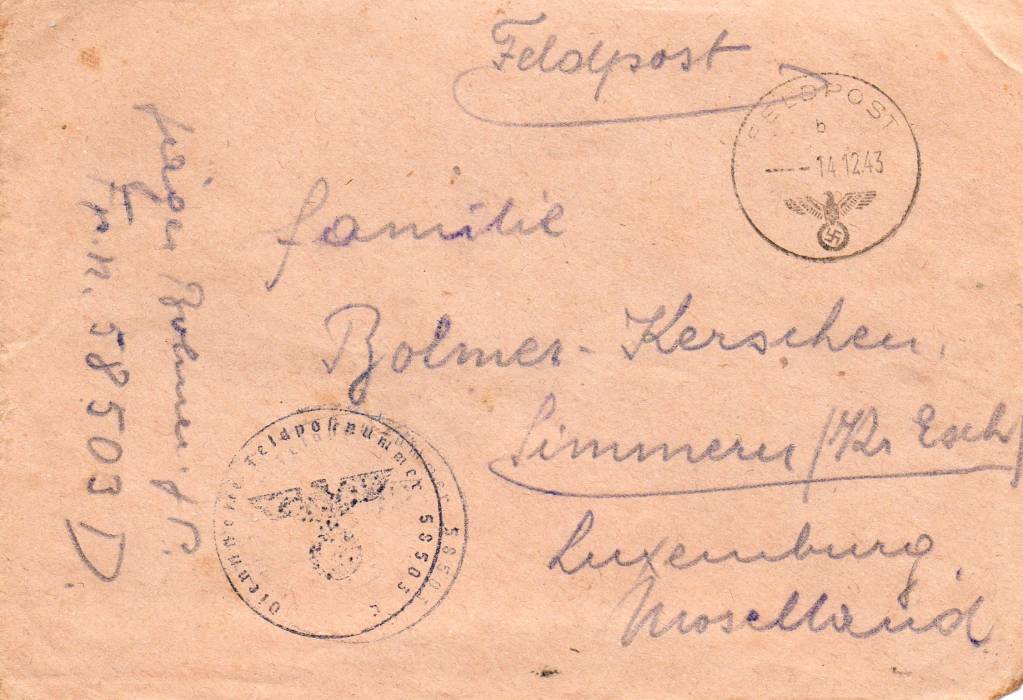 Feldpost
FELDPOST
b
14.12.43
Familie
Bolmes-Kerschen.
Simmern/Kr Esch/
Luxemburg
Moselland
Bolmes
F.p.n. 58503 D
Feldpostnummer